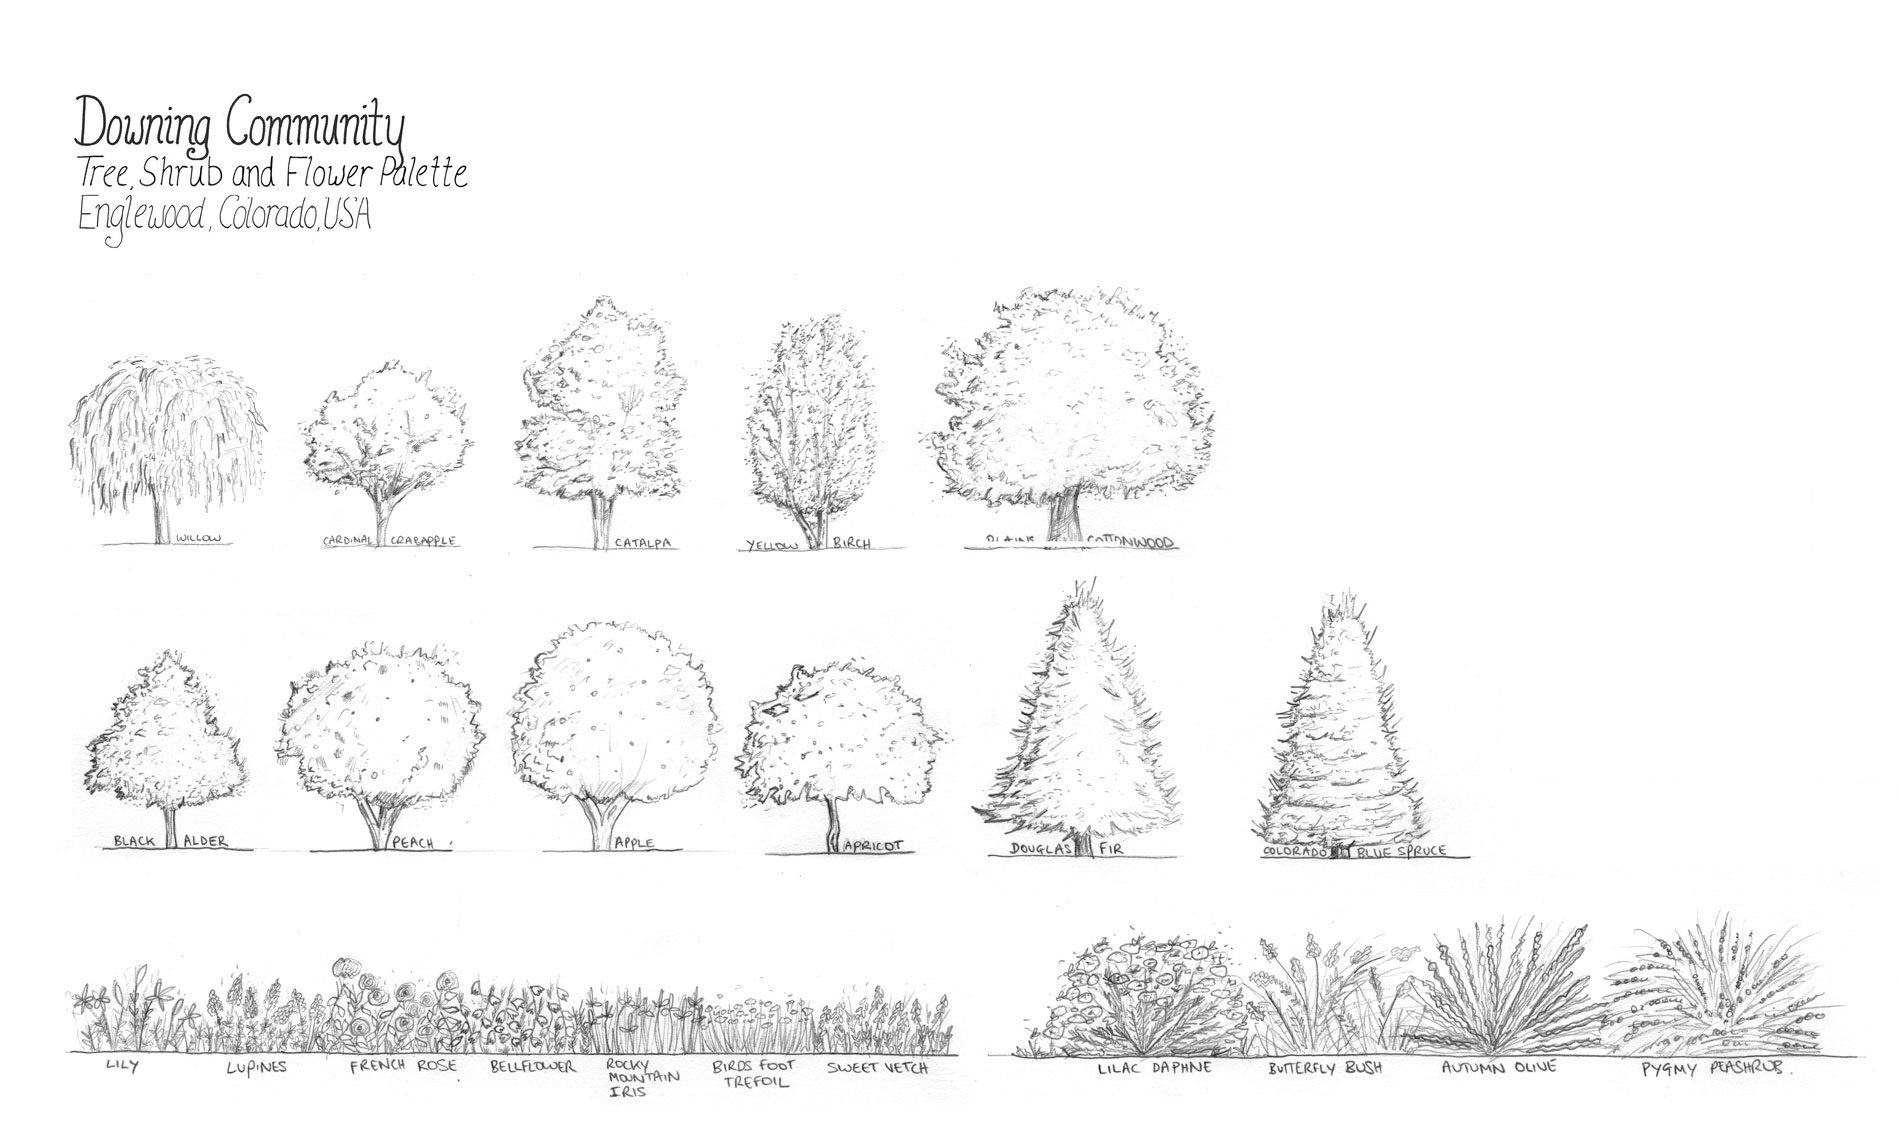 Downing Community
Tree, Shrub and Flower Palette
Englewood, Colorado, USA
WILLOW
CARDINAL CRABAPPLE
CATALPA
YELLOW BIRCH
PLAINS COTTONWOOD
BLACK ALDER
PEACH
APPLE
APRICOT
DOUGLAS FIR
COLORADO BLUE SPRUCE
LILY
LUPINES
FRENCH ROSE
BELLFLOWER
ROCKY
MOUNTAIN
IRIS
BIRDS FOOT
TREFOIL
SWEET VETCH
LILAC DAPHNE
BUTTERFLY BUSH
AUTUMN OLIVE
PYGMY PEASHRUB.